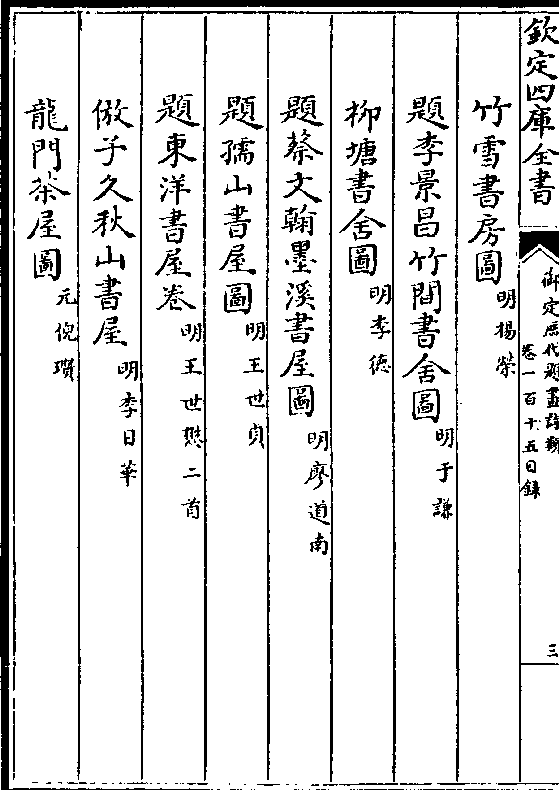 欽定四庫全書
御定歷代題畫詩類
卷一百十五目錄
三
竹雪書房圖
明楊榮
題李景昌竹間書舍圖
明于謙
柳塘書舍圖
明李德
題蔡文翰墨溪書屋圖
明廖道南
題孺山書屋圖
明王世貞
題東洋書屋卷
明王世懋二首
倣子久秋山書屋
明李日華
龍門茶屋圖
元倪瓚